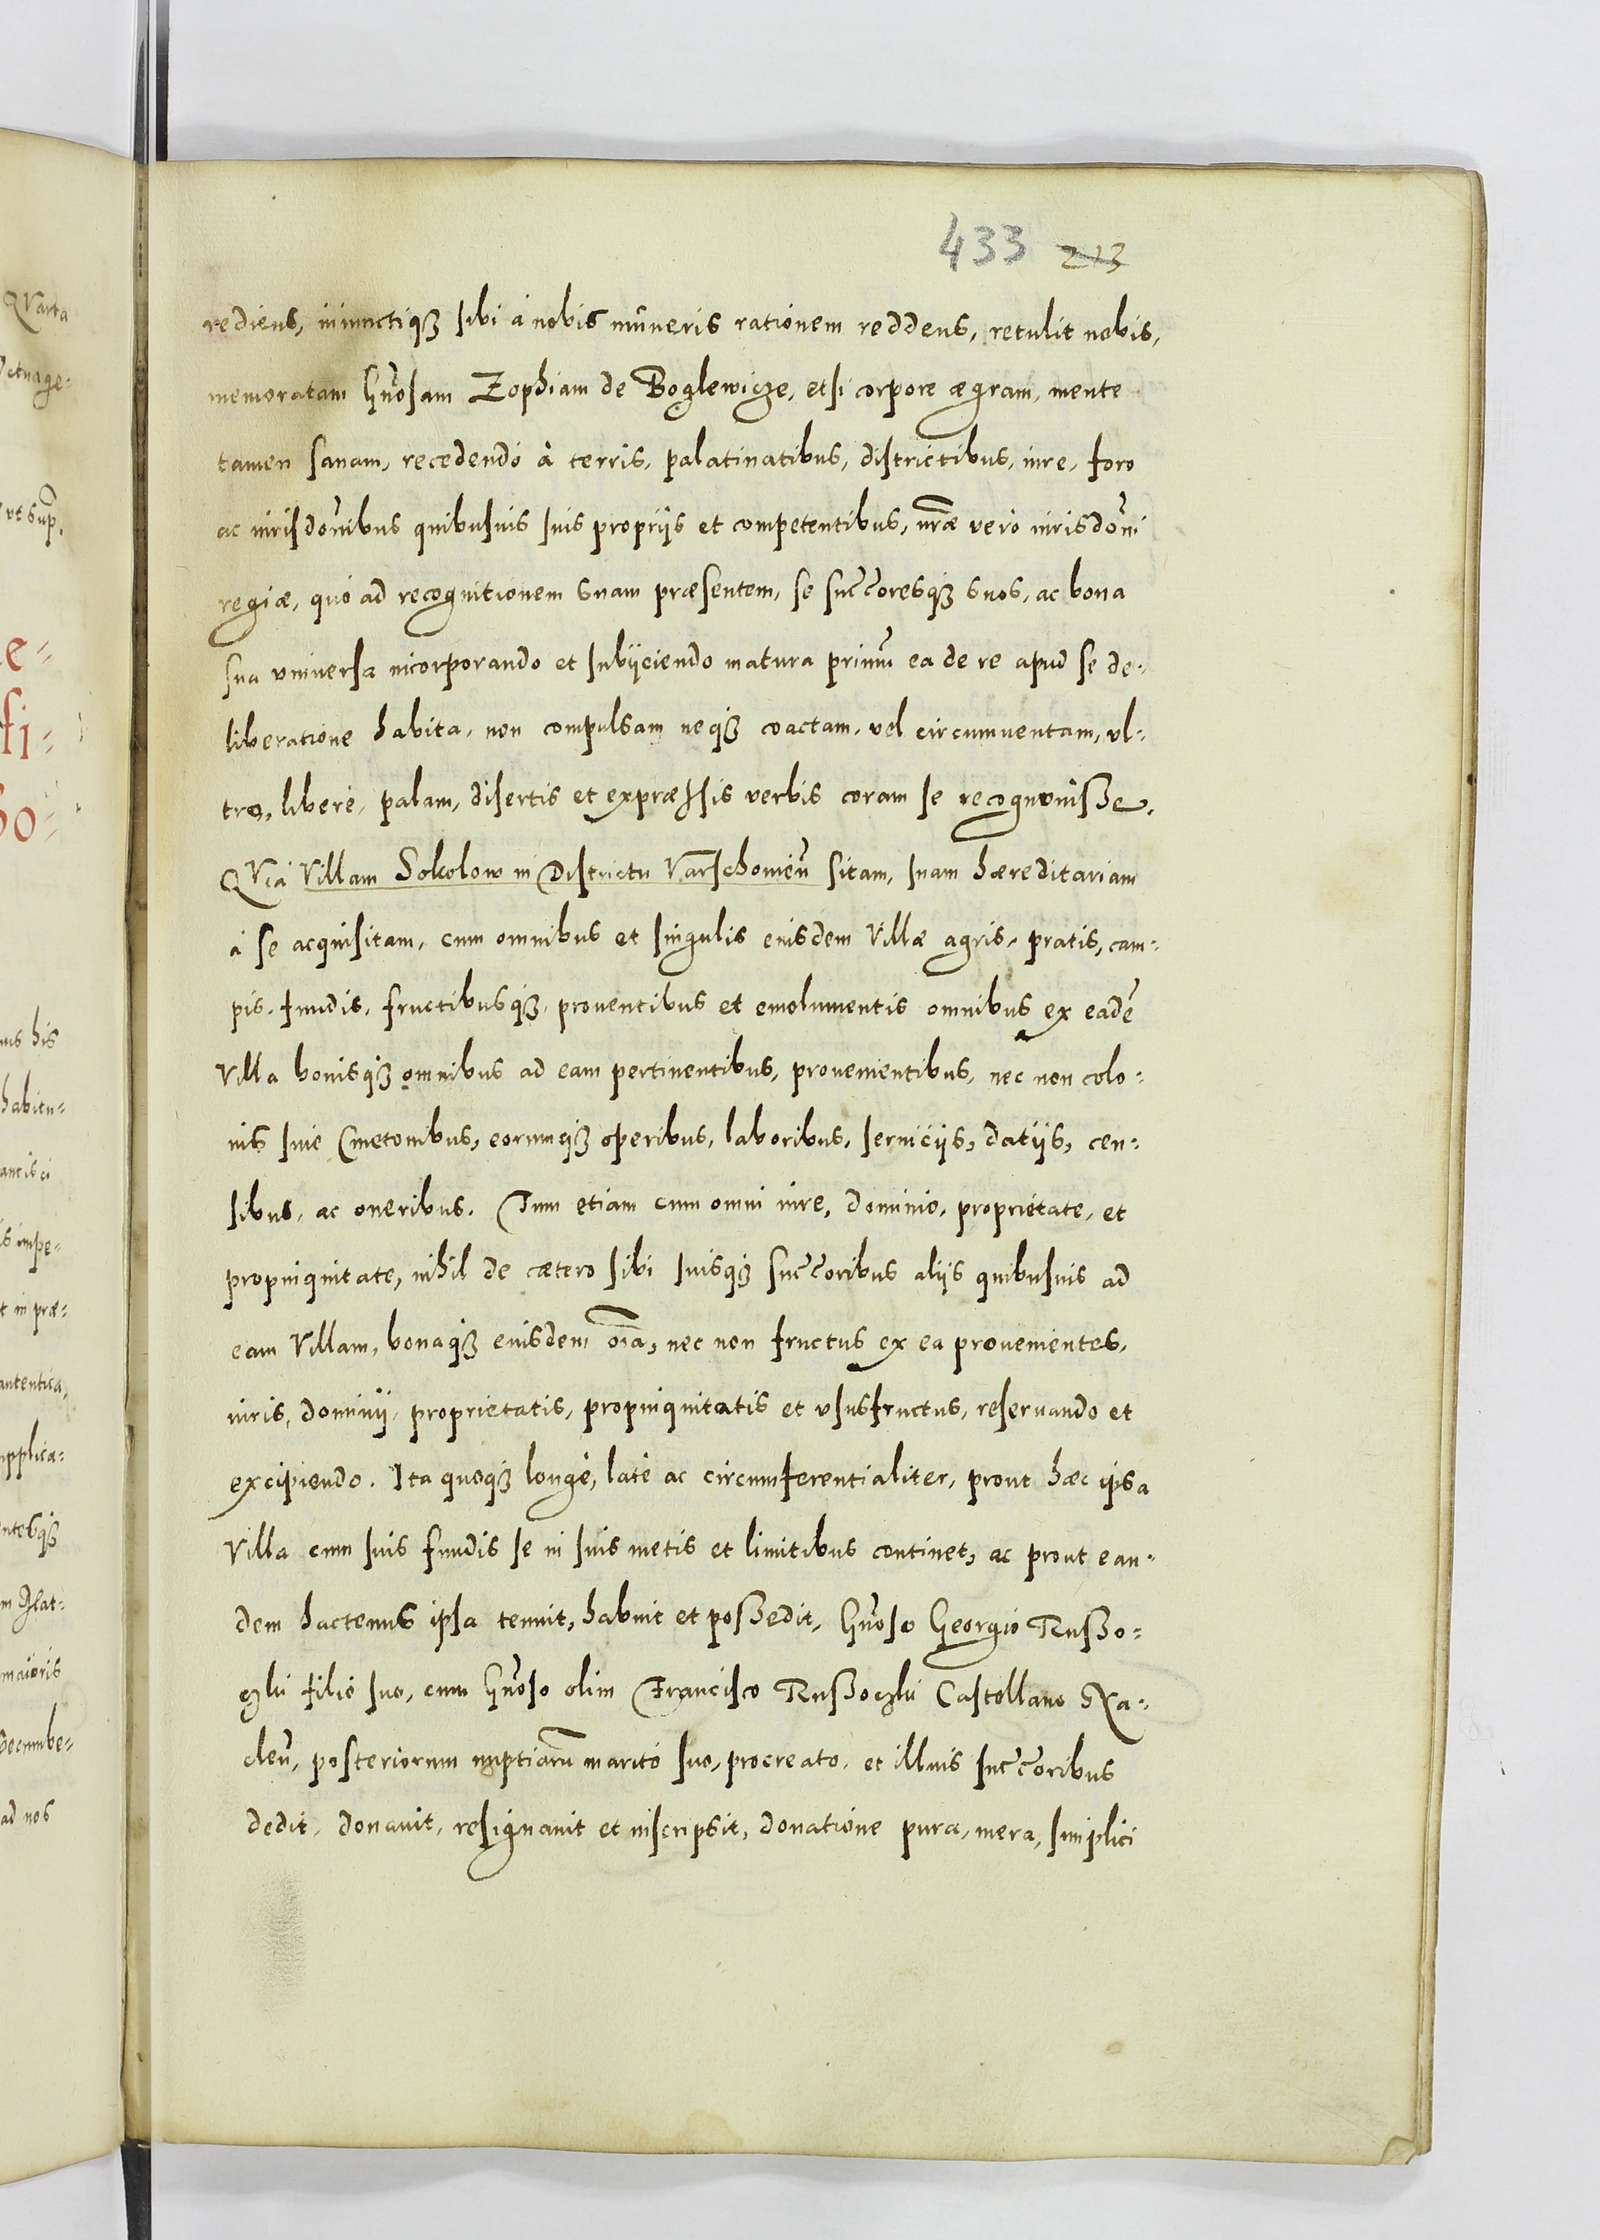 433 213
rediens, iniunctiq3 sibi à nobis muneris rationem reddens, retulit nobis,
memoratam Gnosam Zophiam de Boglewicze, etsi corpore ægram, mente
tamen sanam, recedendo à terris, palatinatibus, districtibus, iure, foro
ac iurisdōnibus quibusuis suis proprijs et competentibus, nr̄æ vero iurisdōni
regiæ, quo ad recognitionem suam præsentem, se succ̄oresq3 suos, ac bona
sua vniuersa incorporando et subijciendo matura primū ea de re apud se de-
liberatione habita, non compulsam neq3 coactam, vel circumuentam, vl-
tro, liberè, palam, disertis et expræssis verbis coram se recognouisse.
QVia Villam Sokolow in Districtu Varschouien̄ sitam, suam hæreditariam
à se acquisitam, cum omnibus et singulis eiusdem Villæ agris, pratis, cam-
pis, fundis, fructibusq3, prouentibus et emolumentis omnibus ex eadē
Villa bonisq3 omnibus ad eam pertinentibus, prouenientibus, nec non colo-
nis siue Cmetonibus, eorumq3 operibus, laboribus, seruicijs, datijs, cen-
sibus, ac oneribus. Tum etiam cum omni iure, dominio, proprietate, et
propinquitate, nihil de cætero sibi suisq3 succ̄oribus alijs quibusuis ad
eam Villam, bonaq3 eiusdem oīa, nec non fructus ex ea prouenientes,
iuris, dominij, proprietatis, propinquitatis et vsusfructus, reseruando et
excipiendo. Ita quoq3 longè, latè ac circumferentialiter, prout hæc ipsa
Villa cum suis fundis se in suis metis et limitibus continet, ac prout ean-
dem hactenus ipsa tenuit, habuit et possedit, Gnoso Georgio Russo-
czki filio suo, cum Gnoso olim Francisco Russoczki Castellano Na-
clen̄, posteriorum nuptiarū marito suo, procreato, et illius succ̄oribus
dedit, donauit, resignauit et inscripsit, donatione pura, mera, simplici